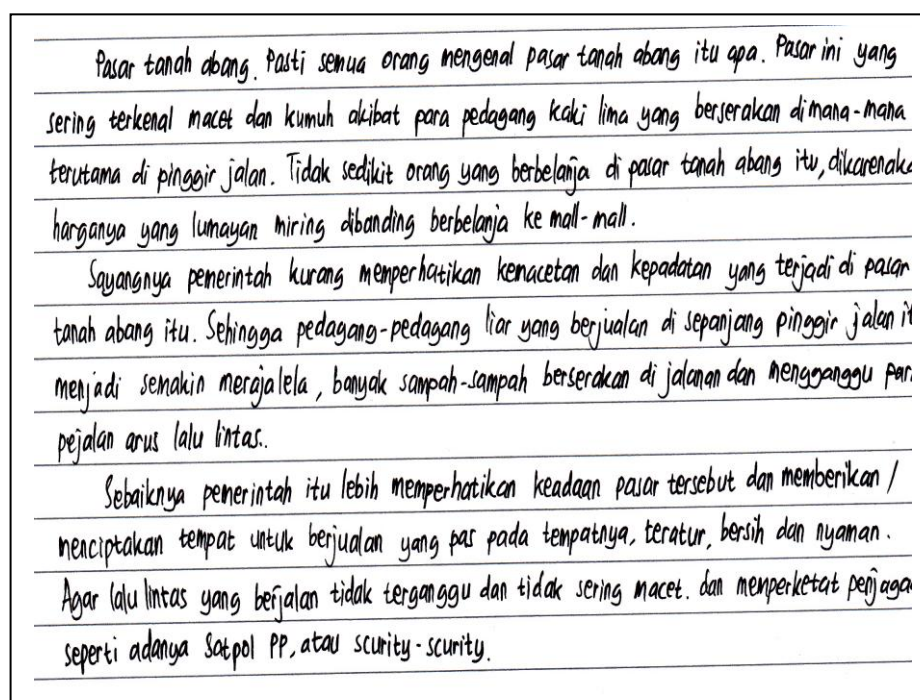 Pasar tanah abang. Pasti semua orang mengenal pasar tanah abang itu apa. Pasar ini yang
sering terkenal macet dan kumuh akibat para pedagang kaki lima yang berserakan dimana-mana
terutama di pinggir jalan. Tidak sedikit orang yang berbelanja di pasar tanah abang itu, dikarenaka
harganya yang lumayan miring dibanding berbelanja ke mall-mall.
Sayangnya pemerintah kurang memperhatikan kemacetan dan kepadatan yang terjadi di pasar
tanah abang itu. Sehingga pedagang-pedagang liar yang berjualan di sepanjang pinggir jalan it
menjadi semakin merajalela, banyak sampah-sampah berserakan di jalanan dan mengganggu par
pejalan arus lalu lintas..
Sebaiknya pemerintah itu lebih memperhatikan keadaan pasar tersebut dan memberikan /
menciptakan tempat untuk berjualan yang pas pada tempatnya, teratur, bersih dan nyaman.
Agar lalu lintas yang berjalan tidak terganggu dan tidak sering macet. dan memperketat penjaga
seperti adanya Satpol PP, atau scurity-scurity.